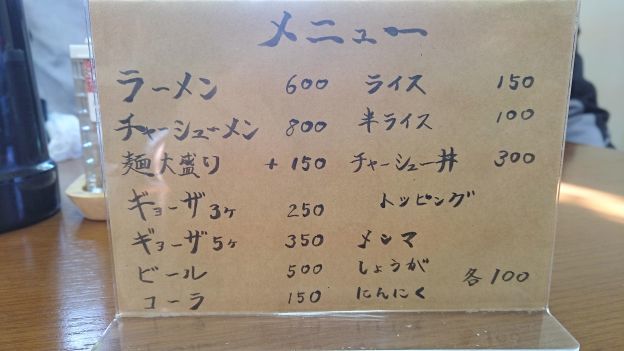 メニュー
ラーメン 600
チャーシューメン 800
麺大盛り +150
ギョーザ3ヶ 250
ギョーザ5ヶ 350
ビール 500
コーラ 150
ライス 150
半ライス 100
チャーシュー丼 300
トッピング
メンマ
しょうが 各100
にんにく